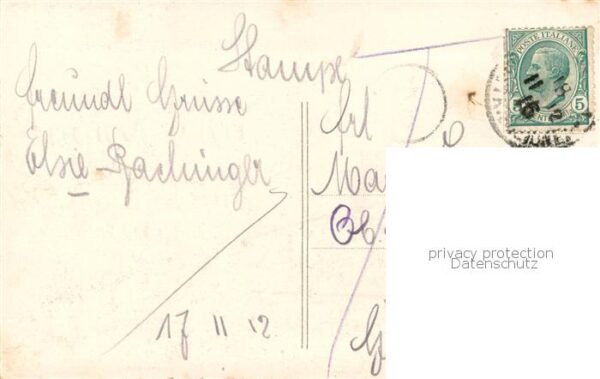 Stampe
freundl Grüsse
Elsie Rachinger
17 11 12
Frl
Ma
Ob.
POSTE ITALIANE
5 5
18
11
12
15
privacy protection
Datenschutz